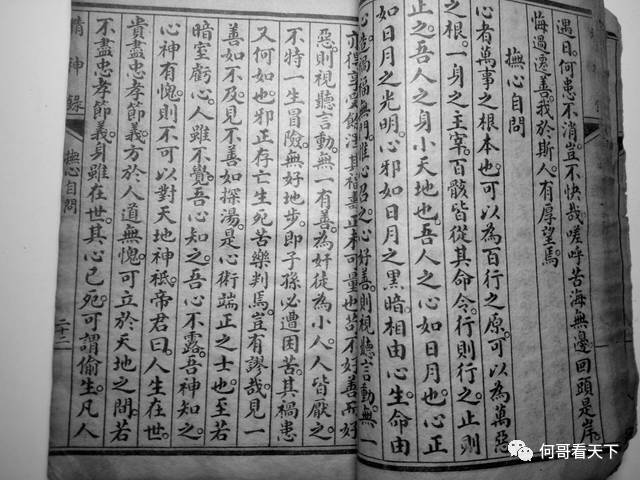 遇日何患不消豈不快哉嗟呼苦海無邊回頭是岸
悔過遷善我於斯人有厚望焉
撫心自問
心者萬事之根本也可以為百行之原可以為萬惡
之根一身之主宰百骸皆從其命令行則行之止則
止之吾人之身小天地也吾人之心如日月也心正
如日月之光明心邪如日月之黑暗相由心生命由
心造禍福無門惟心召之心好善則視聽言動無一
亦得享受餘澤其福壽正未可量也苟不好善而好
惡則視聽言動無一有善為奸徒為小人人皆厭之
不特一生冒險無好地步即子孫必遭困苦其禍患
又何如也邪正存亡生死苦樂判焉豈有謬哉見一
善如不及見不善如探湯是心術端正之士也至若
暗室虧心人雖不覺吾心知之吾心不露吾神知之
心神有愧則不可以對天地神祇帝君曰人生在世
貴盡忠孝節義方於人道無愧可立於天地之間若
不盡忠孝節義身雖在世其心已死可謂偷生凡人
精神錄
撫心自問
二十二
何哥看天下